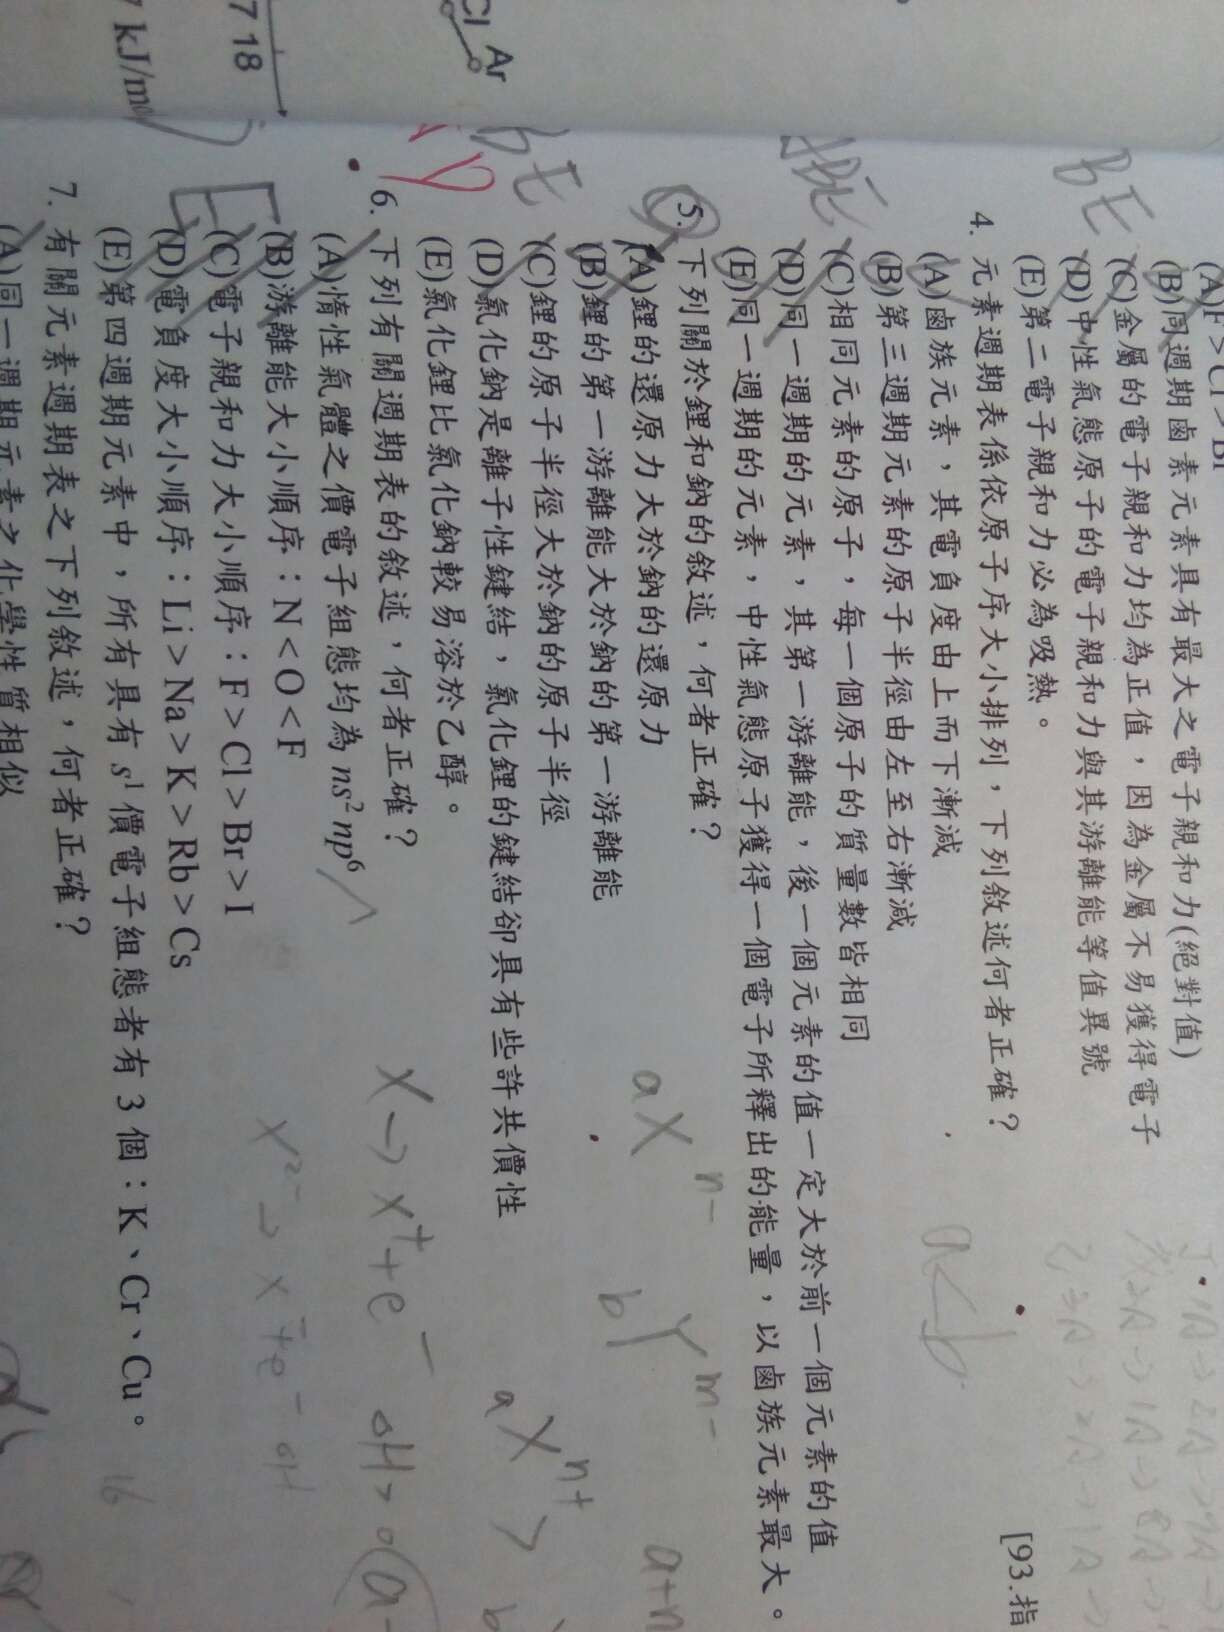 Cl
Ar
7 18
kJ/mol
(A) F > Cl > Br
(B)同週期鹵素元素具有最大之電子親和力(絕對值)
(C)金屬的電子親和力均為正值，因為金屬不易獲得電子
(D)中性氣態原子的電子親和力與其游離能等值異號
(E)第二電子親和力必為吸熱。
BE
4. 元素週期表係依原子序大小排列，下列敘述何者正確？
[93.指
(A)鹵族元素，其電負度由上而下漸減
(B)第三週期元素的原子半徑由左至右漸減
(C)相同元素的原子，每一個原子的質量數皆相同
(D)同一週期的元素，其第一游離能，後一個元素的值一定大於前一個元素的值
(E)同一週期的元素，中性氣態原子獲得一個電子所釋出的能量，以鹵族元素最大。
ABE
5. 下列關於鋰和鈉的敘述，何者正確？
(A)鋰的還原力大於鈉的還原力
(B)鋰的第一游離能大於鈉的第一游離能
(C)鋰的原子半徑大於鈉的原子半徑
(D)氯化鈉是離子性鍵結，氯化鋰的鍵結卻具有些許共價性
(E)氯化鋰比氯化鈉較易溶於乙醇。
BE
6. 下列有關週期表的敘述，何者正確？
(A)惰性氣體之價電子組態均為 ns²np⁶
(B)游離能大小順序：N<O<F
(C)電子親和力大小順序：F>Cl>Br>I
(D)電負度大小順序：Li>Na>K>Rb>Cs
(E)第四週期元素中，所有具有 s¹ 價電子組態者有 3 個：K、Cr、Cu。
7. 有關元素週期表之下列敘述，何者正確？
(A)同一週期元素之化學性質相似
a<b
aXⁿ⁻
bYᵐ⁻
a+n
aXⁿ⁺ >
X→X⁺+e⁻ ΔH>0